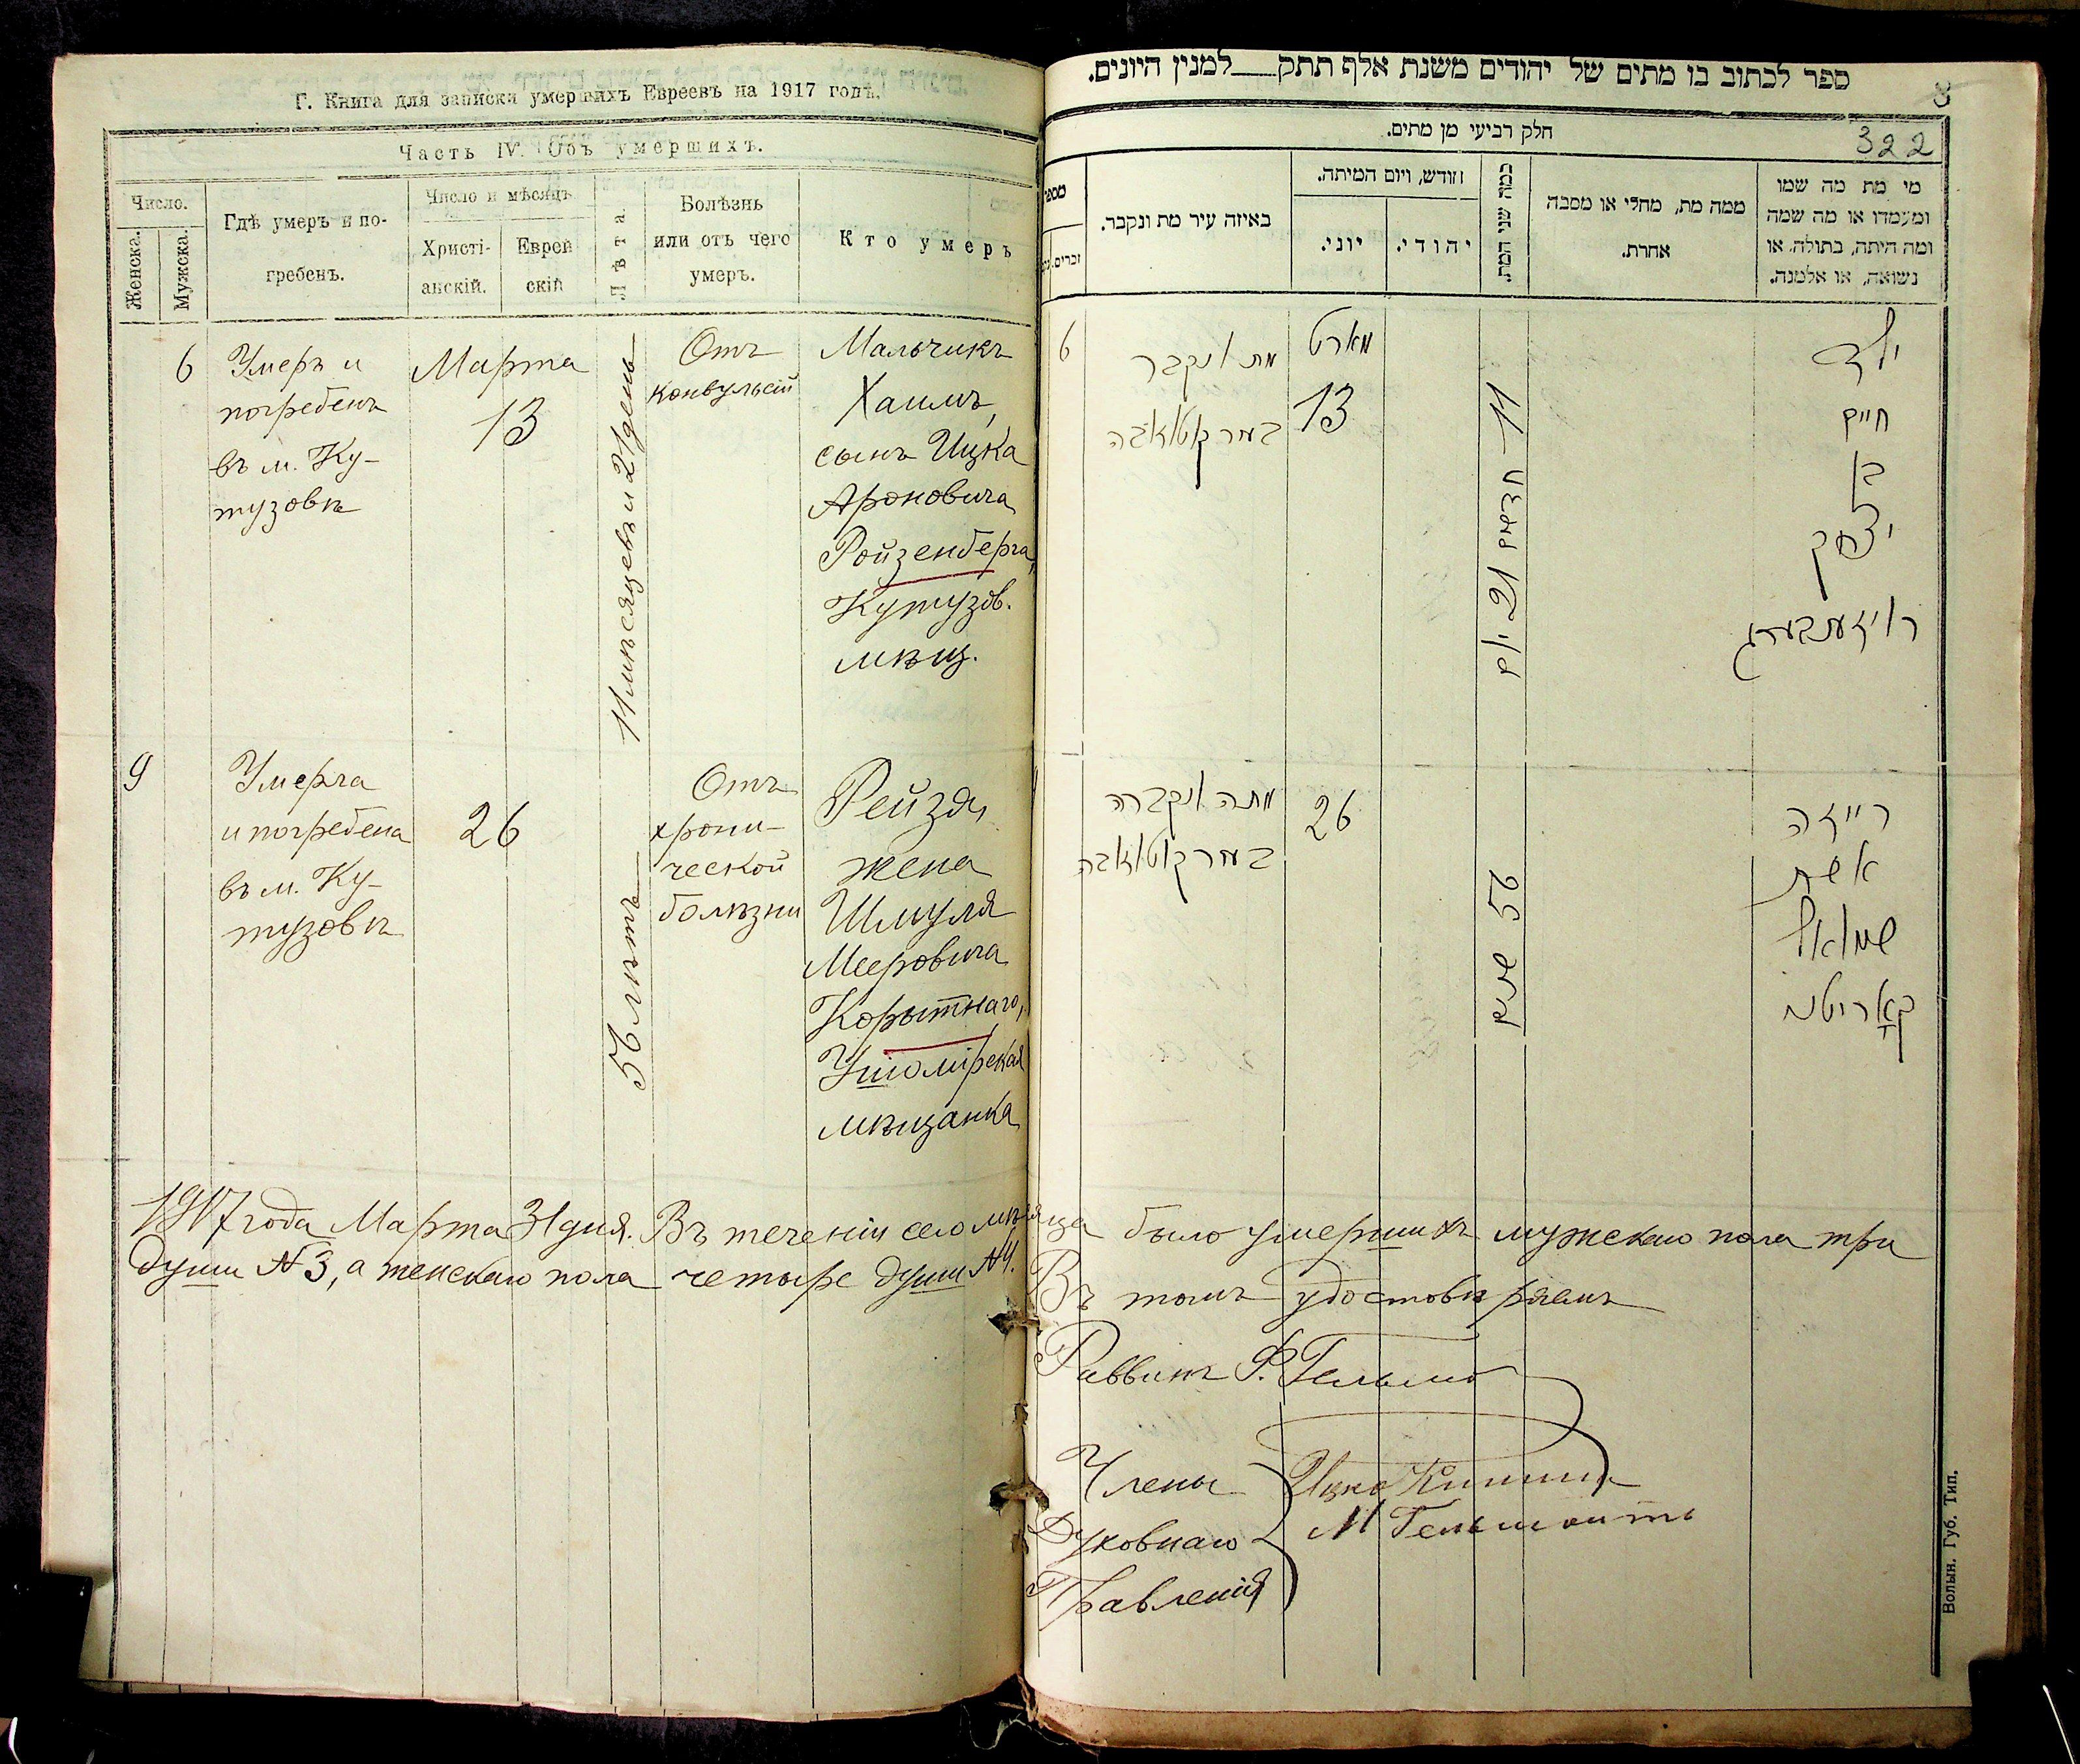 Г. Книга для записки умершихъ Евреевъ на 1917 годъ.
Часть IV. Объ умершихъ.
Число.
Женска.
Мужска.
Гдѣ умеръ и по-
гребенъ.
Число и мѣсяцъ
Христі-
анскій.
Еврей
скій
Лѣта.
Болѣзнь
или отъ чего
умеръ.
Кто умеръ
6
Умеръ и
погребенъ
въ м. Ку-
тузовкѣ
Марта
13
11 мѣсяцевъ и 21 день
Отъ
конвульсій
Мальчикъ
Хаимъ,
сынъ Ицка
Ароновича
Ройзенберга,
Кутузов.
мѣщ.
9
Умерла
и погребена
въ м. Ку-
тузовкѣ
26
56 лѣтъ
Отъ
хрони-
ческой
болѣзни
Рейзя,
жена
Шмуля
Мееровича
Корытнаго,
Ушомірская
мѣщанка
1917 года Марта 31 дня. Въ теченіи сего мѣсяца было умершихъ мужскаго пола три
души №3, а женскаго пола четыре души №4.
Въ томъ удостовѣряемъ
Раввинъ
Члены
Духовнаго
Правленія
Ицко
М Гельм
ספר לכתוב בו מתים של יהודים משנת אלף תתק___למנין היונים.
8
322
חלק רביעי מן מתים.
מספר
זכרים.
באיזה עיר מת ונקבר.
חודש, ויום המיתה.
יוני.
יהודי.
כמה שני המת.
ממה מת, מחלי או מסבה
אחרת.
מי מת מה שמו
ומעמדו או מה שמה
ומה היתה, בתולה, או
נשואה, או אלמנה.
6
מת ונקבר
מארט
13
11 חדשים 21 יום
ילד
חיים
בן
יצחק
רויזענבערג
מתה ונקברה
26
56 שנים
רייזה
אשת
שמואל
קאריטני
Волын. Губ. Тип.